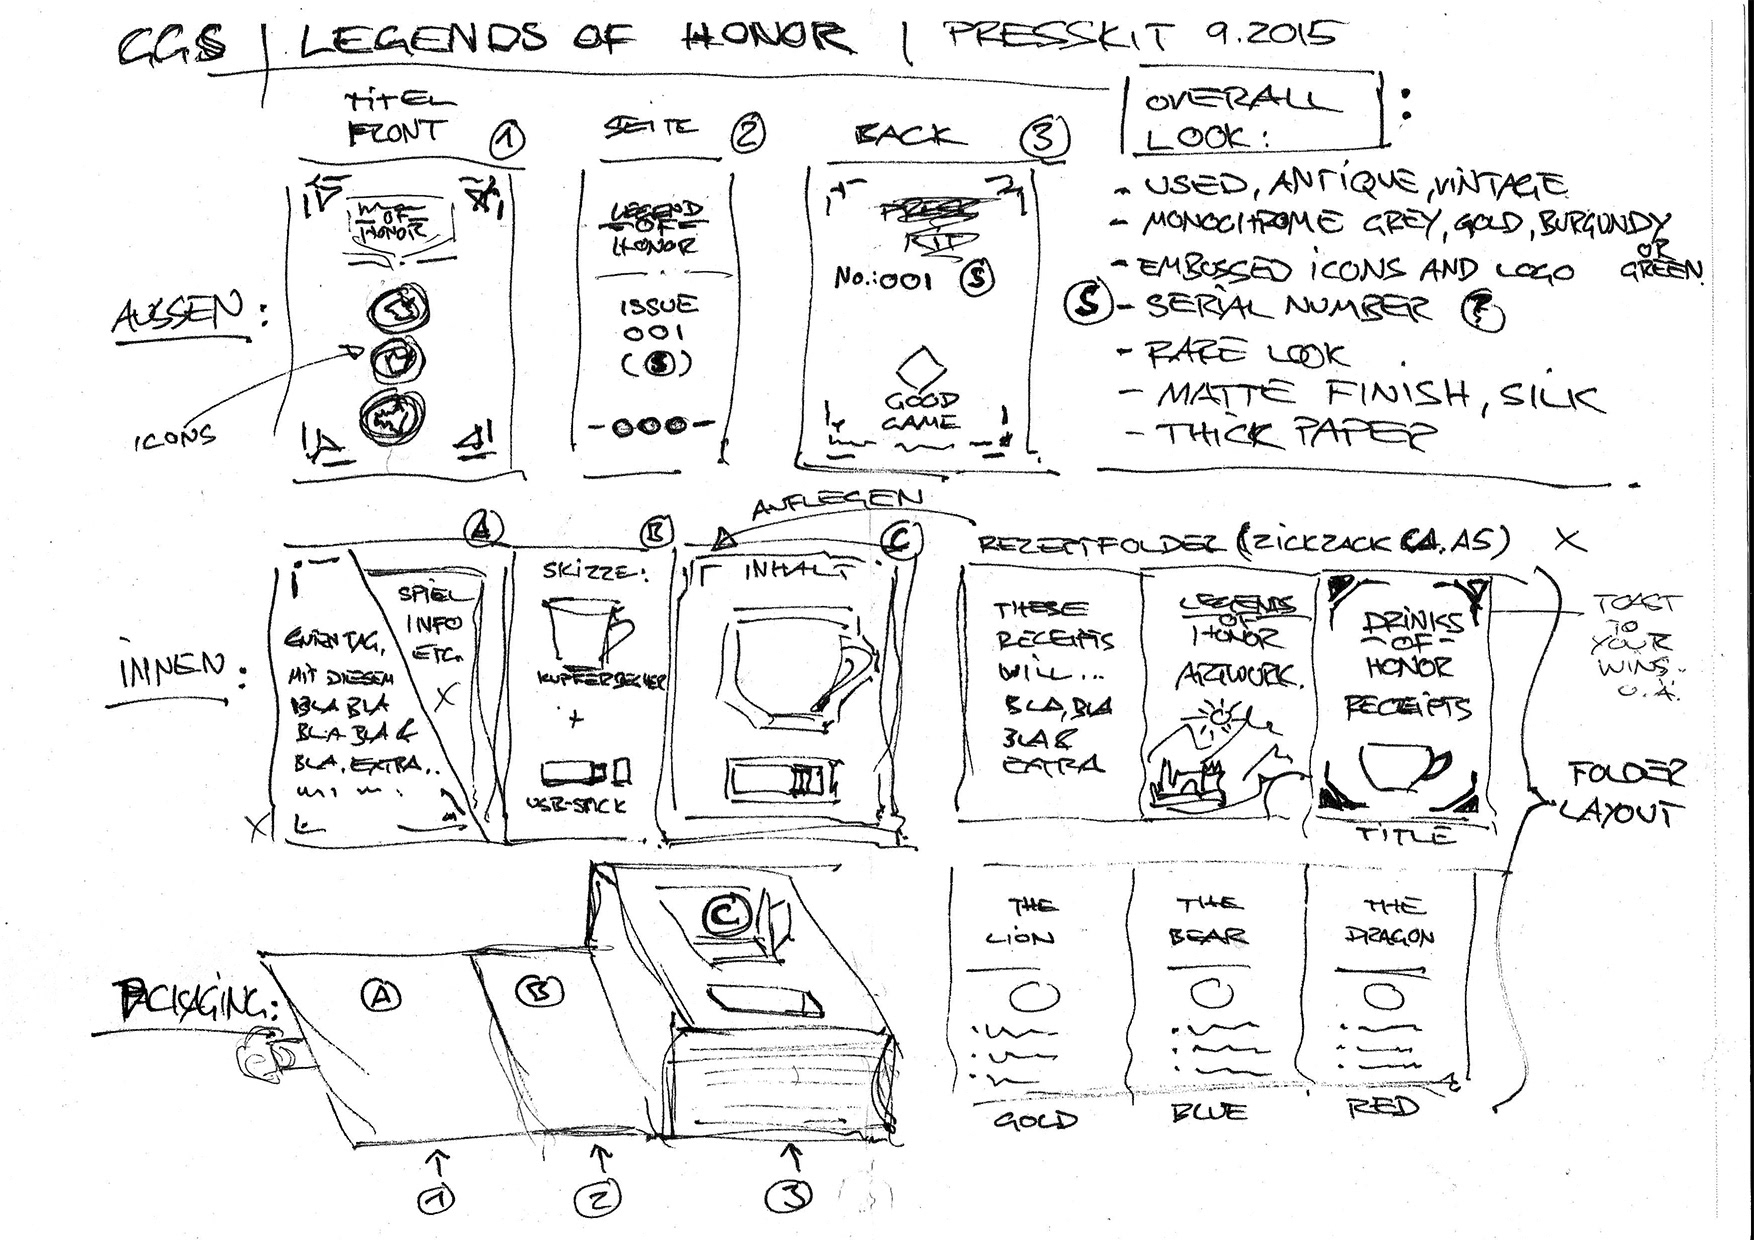 GGS | LEGENDS OF HONOR | PRESSKIT 9.2015
TITEL
FRONT
1
SEITE
2
BACK
3
OVERALL
LOOK:
:
- USED, ANTIQUE, VINTAGE
- MONOCHROME GREY, GOLD, BURGUNDY
OR
GREEN.
- EMBOSSED ICONS AND LOGO
S - SERIAL NUMBER ?
- RARE LOOK
- MATTE FINISH, SILK
- THICK PAPER
AUSSEN:
ICONS
OF
HONOR
LEGEND
OF
HONOR
ISSUE
001
(S)
PRESS
KIT
No.:001 S
GOOD
GAME
INNEN:
A
GUTEN TAG,
MIT DIESEM
BLA BLA
BLA BLA &
BLA. EXTRA..
X
SPIEL
INFO
ETC.
X
B
SKIZZE:
KUPFERBECHER
+
USB-STICK
AUFLEGEN
C
INHALT
REZEPTFOLDER (ZICKZACK CA. A5) X
THESE
RECEIPTS
WILL...
BLA, BLA
BLA &
EXTRA
LEGENDS
OF
HONOR
ARTWORK.
DRINKS
OF
HONOR
RECEIPTS
TITLE
TOAST
TO
YOUR
WINS..
O.Ä.
FOLDER
LAYOUT
THE
LION
GOLD
THE
BEAR
BLUE
THE
DRAGON
RED
PACKAGING:
A
B
C
1
2
3